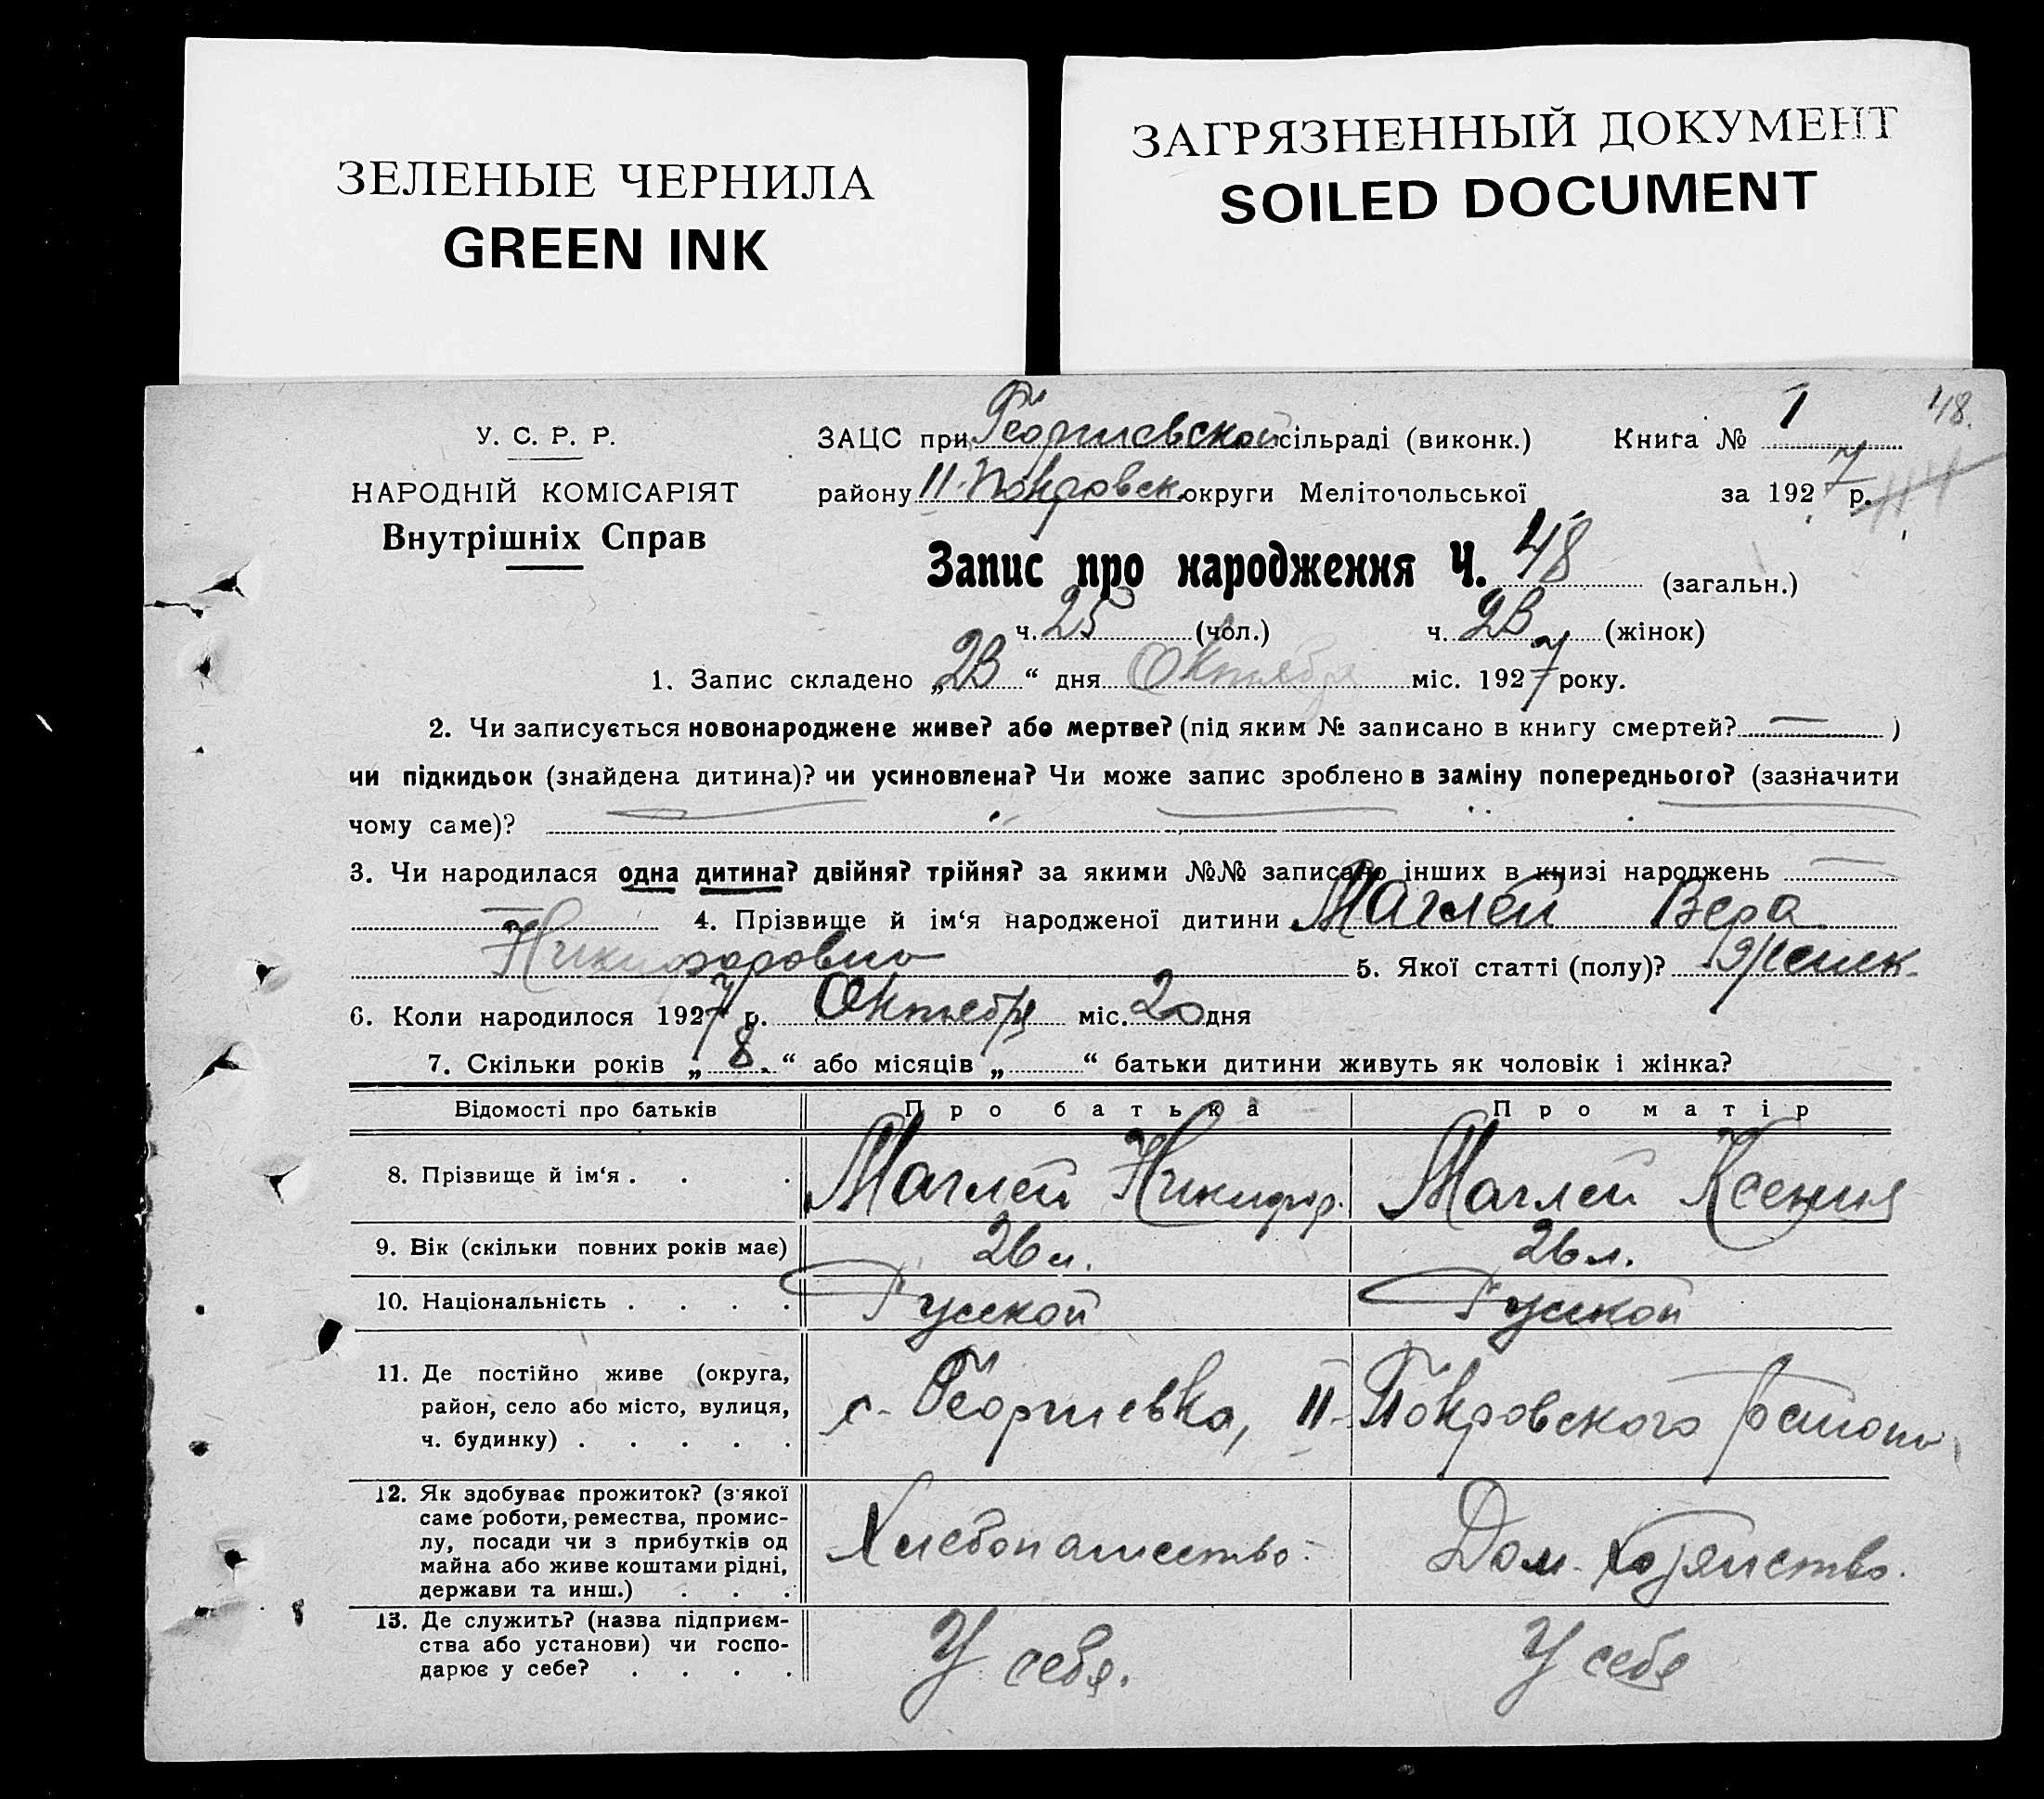 ЗЕЛЕНЫЕ ЧЕРНИЛА
GREEN INK
ЗАГРЯЗНЕННЫЙ ДОКУМЕНТ
SOILED DOCUMENT
48.
У. С. Р. Р.
НАРОДНІЙ КОМІСАРІЯТ
Внутрішніх Справ
ЗАЦС при Георгиевской сільраді (виконк.) Книга № 1
району II-Покровск. округи Мелітопольської за 1927 р.
Запис про народження Ч. 48 (загальн.)
ч. 25 (чол.) ч. 23 (жінок)
1. Запис складено „23“ дня Октября міс. 1927 року.
2. Чи записується новонароджене живе? або мертве? (під яким № записано в книгу смертей? — )
чи підкидьок (знайдена дитина)? чи усиновлена? Чи може запис зроблено в заміну попереднього? (зазначити
чому саме)?
3. Чи народилася одна дитина? двійня? трійня? за якими №№ записано інших в книзі народжень —
— 4. Прізвище й ім‘я народженої дитини Маглей Вера
Никифоровна 5. Якої статті (полу)? Женск.
6. Коли народилося 1927 р. Октября міс. 20 дня
7. Скільки років „8.“ або місяців „ “ батьки дитини живуть як чоловік і жінка?
Відомості про батьків Про батька Про матір
8. Прізвище й ім‘я . . . Маглей Никифор. Маглей Ксения
9. Вік (скільки повних років має) 26 л. 26 л.
10. Національність . . . . Русской Русской
11. Де постійно живе (округа,
район, село або місто, вулиця,
ч. будинку) . . . . .
с. Георгиевка, II-Покровского района
12. Як здобуває прожиток? (з'якої
саме роботи, ремества, промис-
лу, посади чи з прибутків од
майна або живе коштами рідні,
держави та инш.) . . .
Хлебопашество. Дом. хозяйство.
13. Де служить? (назва підприєм-
ства або установи) чи госпо-
дарює у себе? . . . .
У себя. У себя